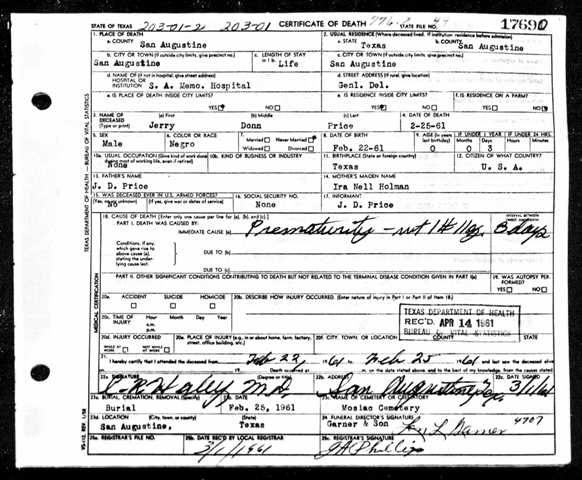 STATE OF TEXAS 203-01-2 203-01 CERTIFICATE OF DEATH STATE FILE NO. 17690
1. PLACE OF DEATH 2. USUAL RESIDENCE (Where deceased lived. If institution: residence before admission)
a. COUNTY San Augustine a. STATE Texas b. COUNTY San Augustine
b. CITY OR TOWN (If outside city limits, give precinct no.) c. LENGTH OF STAY in 1 b. c. CITY OR TOWN (If outside city limits, give precinct no.)
San Augustine Life San Augustine
d. NAME OF (If not in hospital, give street address) HOSPITAL OR INSTITUTION S. A. Memo. Hospital d. STREET ADDRESS (If rural, give location) Genl. Del.
e. IS PLACE OF DEATH INSIDE CITY LIMITS? YES NO e. IS RESIDENCE INSIDE CITY LIMITS? YES NO f. IS RESIDENCE ON A FARM? YES NO
3. NAME OF DECEASED (Type or print) (a) First (b) Middle (c) Last 4. DATE OF DEATH
Jerry Donn Price 2-25-61
5. SEX 6. COLOR OR RACE 7. Married Never Married Widowed Divorced 8. DATE OF BIRTH 9. AGE (In years last birthday) IF UNDER 1 YEAR Months Days IF UNDER 24 HRS. Hours Min.
Male Negro Feb. 22-61 0 0 3
10a. USUAL OCCUPATION (Give kind of work done during most of working life, even if retired) 10b. KIND OF BUSINESS OR INDUSTRY 11. BIRTHPLACE (State or foreign country) 12. CITIZEN OF WHAT COUNTRY?
None Texas U. S. A.
13. FATHER'S NAME 14. MOTHER'S MAIDEN NAME
J. D. Price Ira Nell Holman
15. WAS DECEASED EVER IN U.S. ARMED FORCES? (Yes, no, or unknown) (If yes, give war or dates of service) 16. SOCIAL SECURITY NO. 17. INFORMANT
No None J. D. Price
18. CAUSE OF DEATH (Enter only one cause per line for (a), (b), and (c).) INTERVAL BETWEEN ONSET AND DEATH
PART I. DEATH WAS CAUSED BY:
IMMEDIATE CAUSE (a) Prematurity - wt 1# 11 ozs. 3 days
Conditions, if any, which gave rise to above cause (a), stating the underlying cause last. DUE TO (b)
DUE TO (c)
PART II. OTHER SIGNIFICANT CONDITIONS CONTRIBUTING TO DEATH BUT NOT RELATED TO THE TERMINAL DISEASE CONDITION GIVEN IN PART I(a) 19. WAS AUTOPSY PERFORMED? YES NO
20a. ACCIDENT SUICIDE HOMICIDE 20b. DESCRIBE HOW INJURY OCCURRED. (Enter nature of injury in Part I or Part II of item 18.)
20c. TIME OF INJURY Hour a.m. p.m. Month Day Year
TEXAS DEPARTMENT OF HEALTH
REC'D. APR 14 1961
BUREAU OF VITAL STATISTICS
20d. INJURY OCCURRED WHILE AT WORK NOT WHILE AT WORK 20e. PLACE OF INJURY (e.g., in or about home, farm, factory, street, office building, etc.) 20f. CITY, TOWN, OR LOCATION COUNTY STATE
21. I hereby certify that I attended the deceased from Feb 22, 1961 to Feb 25 1961 and last saw the deceased alive
Death occurred at m. on the date stated above, and to the best of my knowledge, from the causes stated.
22a. SIGNATURE (Degree or title) 22b. ADDRESS 22c. DATE SIGNED
Haley M.D. San Augustine 3/1/61
23a. BURIAL, CREMATION, REMOVAL (Specify) 23b. DATE 23c. NAME OF CEMETERY OR CREMATORY
Burial Feb. 25, 1961 Mosiac Cemetery
23d. LOCATION (City, town, or county) (State) 24. FUNERAL DIRECTOR'S SIGNATURE
San Augustine, Texas Garner & Son Garner 4707
25a. REGISTRAR'S FILE NO. 25b. DATE REC'D BY LOCAL REGISTRAR 25c. REGISTRAR'S SIGNATURE
3/1/1961 Phillips
TEXAS DEPARTMENT OF HEALTH — BUREAU OF VITAL STATISTICS
MEDICAL CERTIFICATION